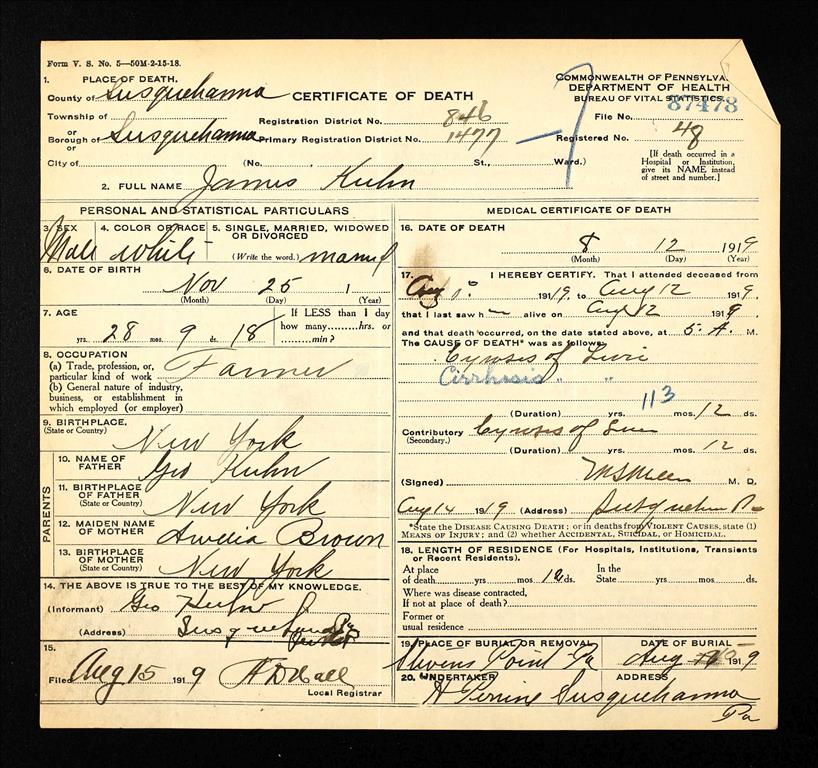 Form V. S. No. 5—50M-2-15-18.
1. PLACE OF DEATH.
County of Susquehanna
CERTIFICATE OF DEATH
COMMONWEALTH OF PENNSYLVA
DEPARTMENT OF HEALTH
BUREAU OF VITAL STATISTICS.
87478
Township of
or
Registration District No. 846
File No.
Borough of Susquehanna
or
Primary Registration District No. 1477
Registered No. 48
City of (No. St., Ward.)
[If death occurred in a
Hospital or Institution,
give its NAME instead
of street and number.]
2. FULL NAME James Kuhn
PERSONAL AND STATISTICAL PARTICULARS
3. SEX
Male
4. COLOR OR RACE
White
5. SINGLE, MARRIED, WIDOWED
OR DIVORCED
(Write the word.) married
6. DATE OF BIRTH
Nov 25 1
(Month) (Day) (Year)
7. AGE
28 yrs. 9 mos. 18 ds.
If LESS than 1 day
how many hrs. or
min?
8. OCCUPATION
(a) Trade, profession, or
particular kind of work Farmer
(b) General nature of industry,
business, or establishment in
which employed (or employer)
9. BIRTHPLACE,
(State or Country)
New York
PARENTS
10. NAME OF
FATHER
Geo Kuhn
11. BIRTHPLACE
OF FATHER
(State or Country)
New York
12. MAIDEN NAME
OF MOTHER
Amelia Brown
13. BIRTHPLACE
OF MOTHER
(State or Country)
New York
14. THE ABOVE IS TRUE TO THE BEST OF MY KNOWLEDGE.
(Informant) Geo Kuhn
(Address) Susquehanna Pa
15.
Filed Aug 15 1919
Local Registrar
MEDICAL CERTIFICATE OF DEATH
16. DATE OF DEATH
8 12 1919
(Month) (Day) (Year)
17.
I HEREBY CERTIFY, That I attended deceased from
Aug 1 1919, to Aug 12 1919,
that I last saw h alive on Aug 12 1919,
and that death occurred, on the date stated above, at 5 A. M.
The CAUSE OF DEATH* was as follows:
Cyroses of Livir
Cirrhosis " "
113
(Duration) yrs. mos. 12 ds.
Contributory Cyroses of Liver
(Secondary.)
(Duration) yrs. mos. 12 ds.
(Signed) M. D.
Aug 14 1919 (Address) Susquehanna Pa
*State the DISEASE CAUSING DEATH; or in deaths from VIOLENT CAUSES, state (1)
MEANS OF INJURY; and (2) whether ACCIDENTAL, SUICIDAL, or HOMICIDAL.
18. LENGTH OF RESIDENCE (For Hospitals, Institutions, Transients
or Recent Residents).
At place
of death yrs mos 12 ds.
In the
State yrs mos ds.
Where was disease contracted,
If not at place of death?
Former or
usual residence
19. PLACE OF BURIAL OR REMOVAL
Stevens Point Pa
DATE OF BURIAL
Aug 15 1919
20. UNDERTAKER
H Perrine
ADDRESS
Susquehanna
Pa